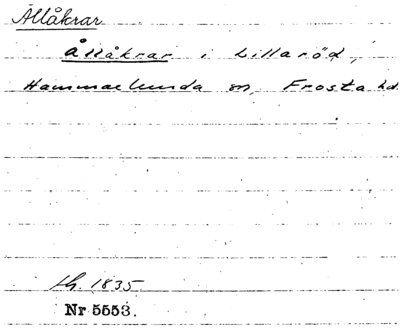 Allåkrar
Ållåkrar i Lillaröd,
Hammarlunda sn, Frosta hd.
th. 1835
Nr 5553.